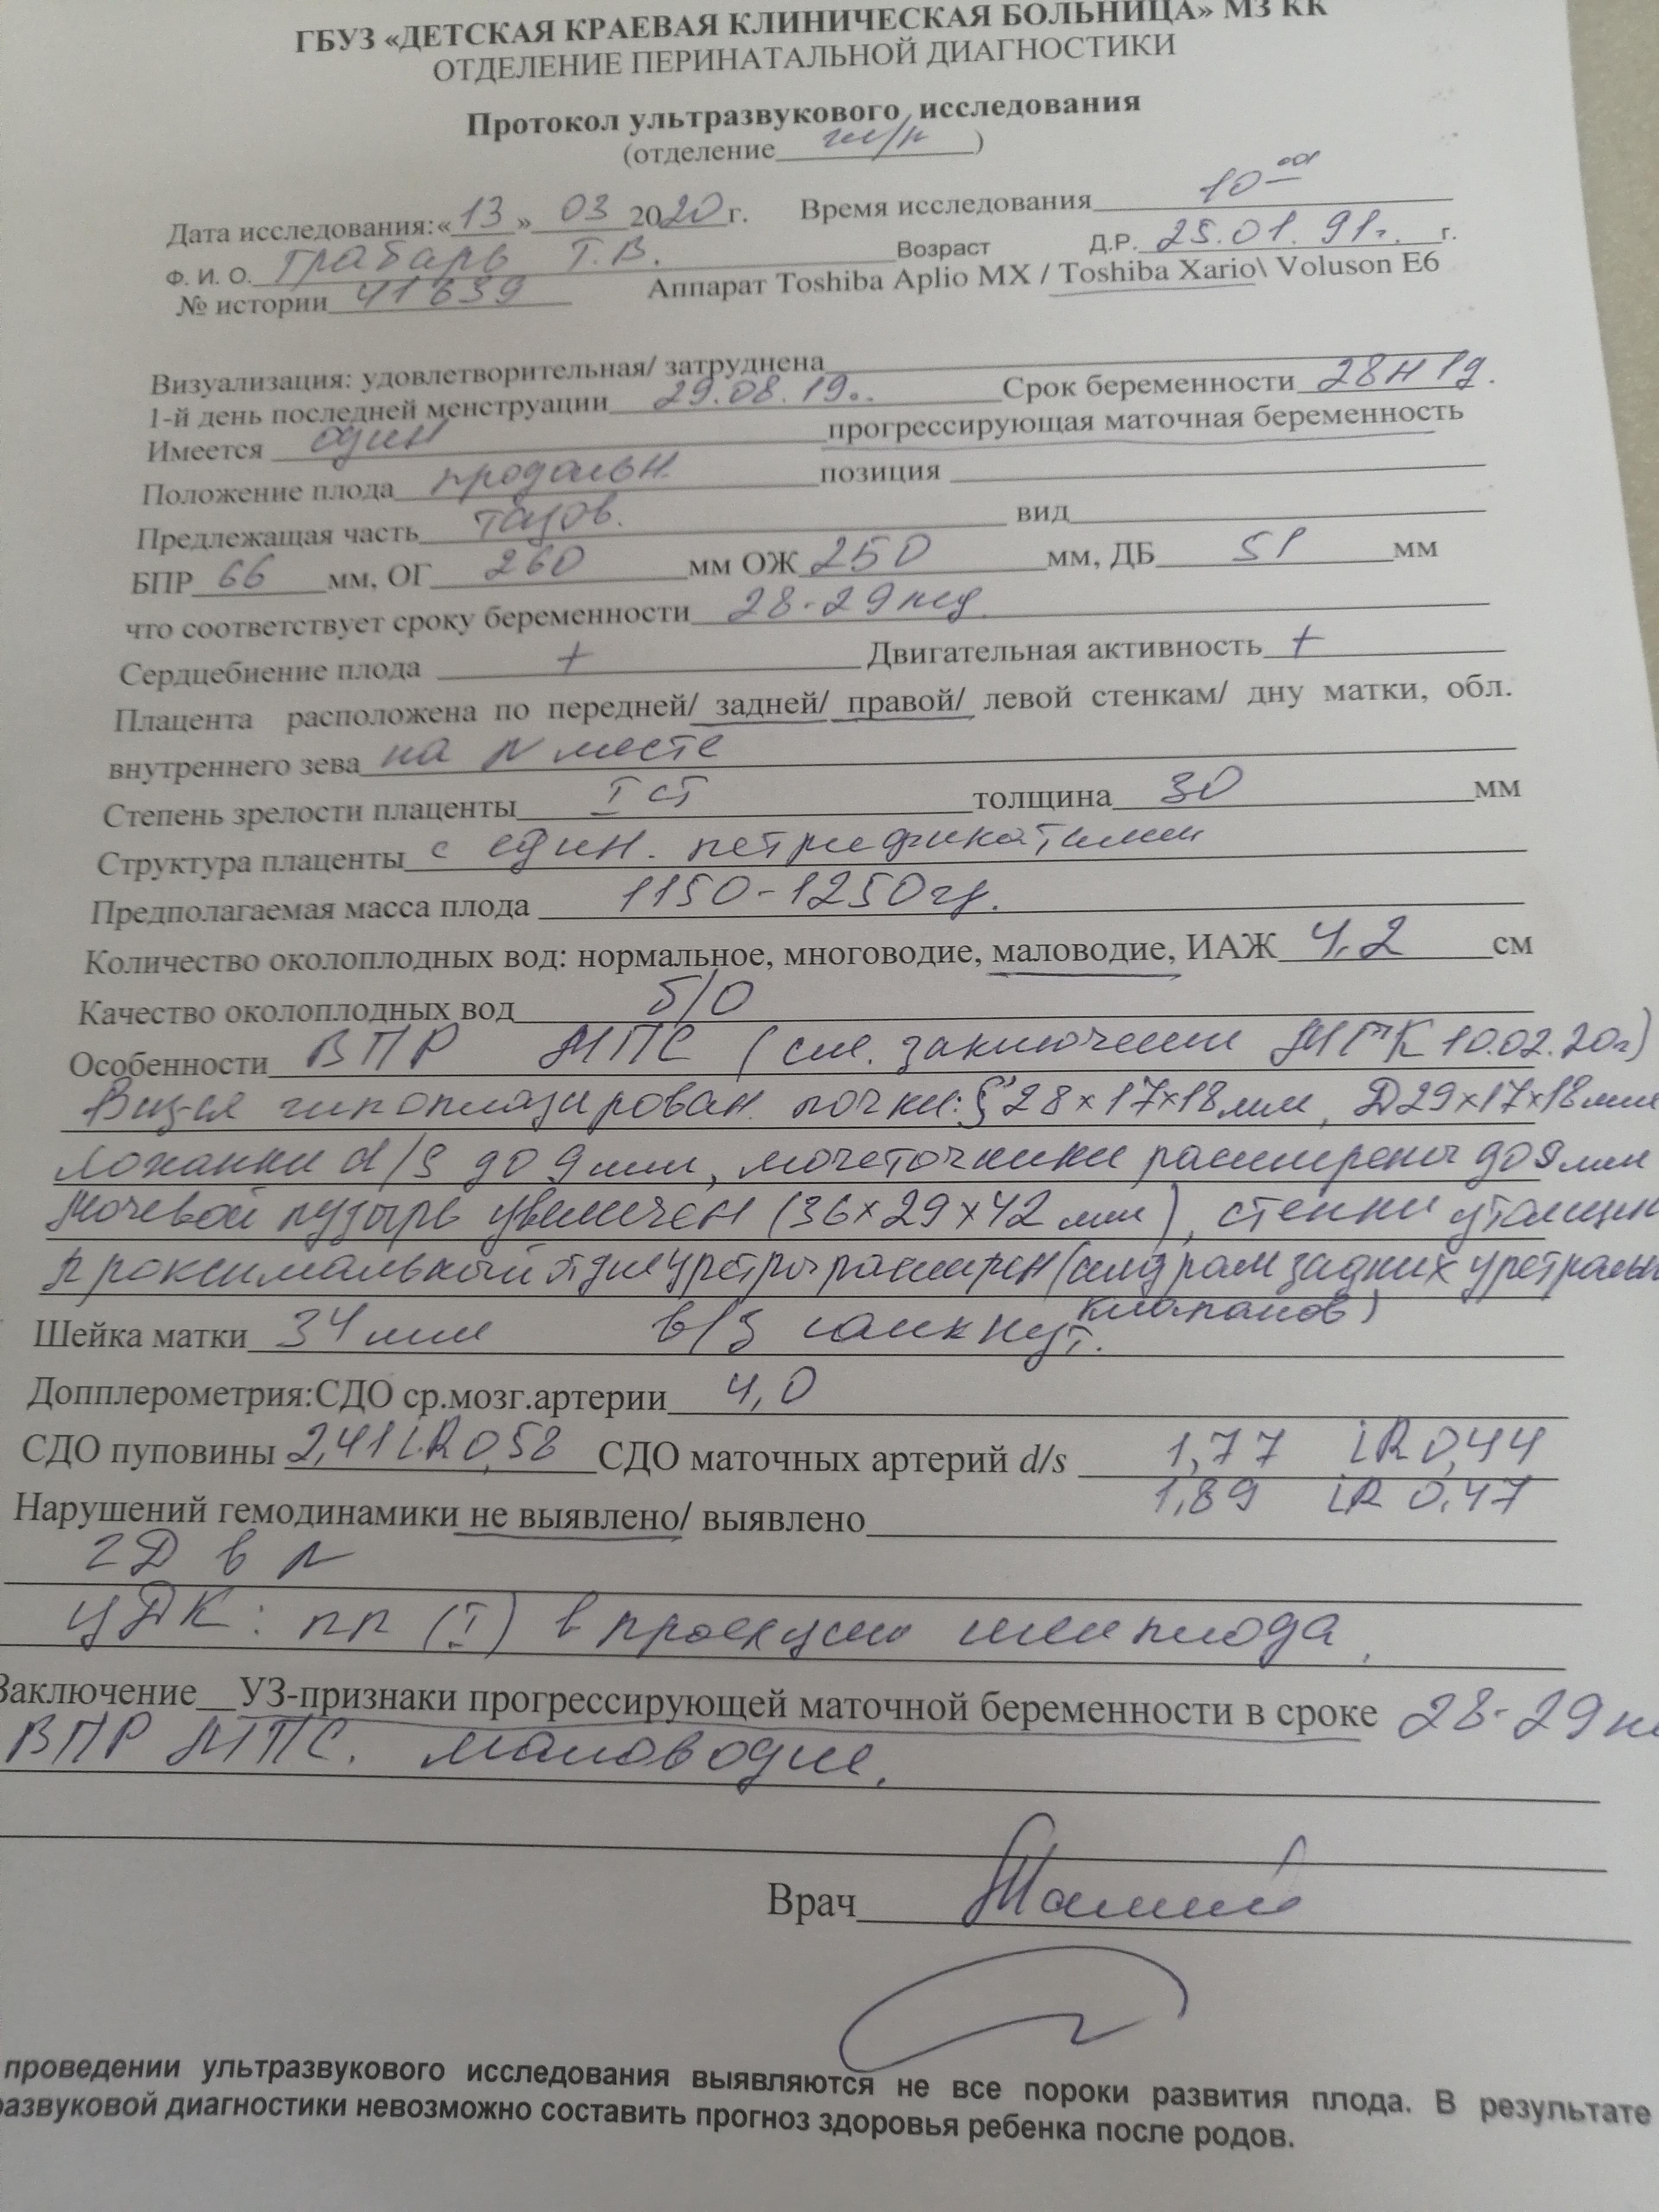 ГБУЗ «ДЕТСКАЯ КРАЕВАЯ КЛИНИЧЕСКАЯ БОЛЬНИЦА» МЗ КК
ОТДЕЛЕНИЕ ПЕРИНАТАЛЬНОЙ ДИАГНОСТИКИ
Протокол ультразвукового исследования
(отделение )
Дата исследования:«13» 03 2020г. Время исследования 10
Ф. И. О. Грабарь Т.В. Возраст Д.Р. 25.01.91г. г.
№ истории 41639 Аппарат Toshiba Aplio MX / Toshiba Xario\ Voluson E6
Визуализация: удовлетворительная/ затруднена
1-й день последней менструации 29.08.19г. Срок беременности 28н 1д.
Имеется один прогрессирующая маточная беременность
Положение плода продольн. позиция
Предлежащая часть тазов. вид
БПР 66 мм, ОГ 260 мм ОЖ 250 мм, ДБ 51 мм
что соответствует сроку беременности 28-29 нед
Сердцебиение плода + Двигательная активность +
Плацента расположена по передней/ задней/ правой/ левой стенкам/ дну матки, обл.
внутреннего зева на N месте
Степень зрелости плаценты I ст толщина 30 мм
Структура плаценты с един. петрификатами
Предполагаемая масса плода 1150-1250гр.
Количество околоплодных вод: нормальное, многоводие, маловодие, ИАЖ 4,2 см
Качество околоплодных вод б/о
Особенности ВПР МПС (см. заключение МГК 10.02.20г)
Виз-ся гипоплазирован. почки: S 28×17×18мм, D 29×17×18мм
Лоханки d/s до 9мм, мочеточники расширены до 9мм
Мочевой пузырь увеличен (36×29×42 мм), стенки утолщен
проксимальный отдел уретры расширен (синдром задних уретральн
клапанов)
Шейка матки 34 мм в/з сомкнут.
Допплерометрия:СДО ср.мозг.артерии 4,0
СДО пуповины 2,41 iR 0,58 СДО маточных артерий d/s 1,77 iR 0,44
1,89 iR 0,47
Нарушений гемодинамики не выявлено/ выявлено
ГД в N
ЦДК: пп (I) в проекции шеи плода.
Заключение УЗ-признаки прогрессирующей маточной беременности в сроке 28-29 не
ВПР МПС. Маловодие.
Врач
проведении ультразвукового исследования выявляются не все пороки развития плода. В результате
развуковой диагностики невозможно составить прогноз здоровья ребенка после родов.